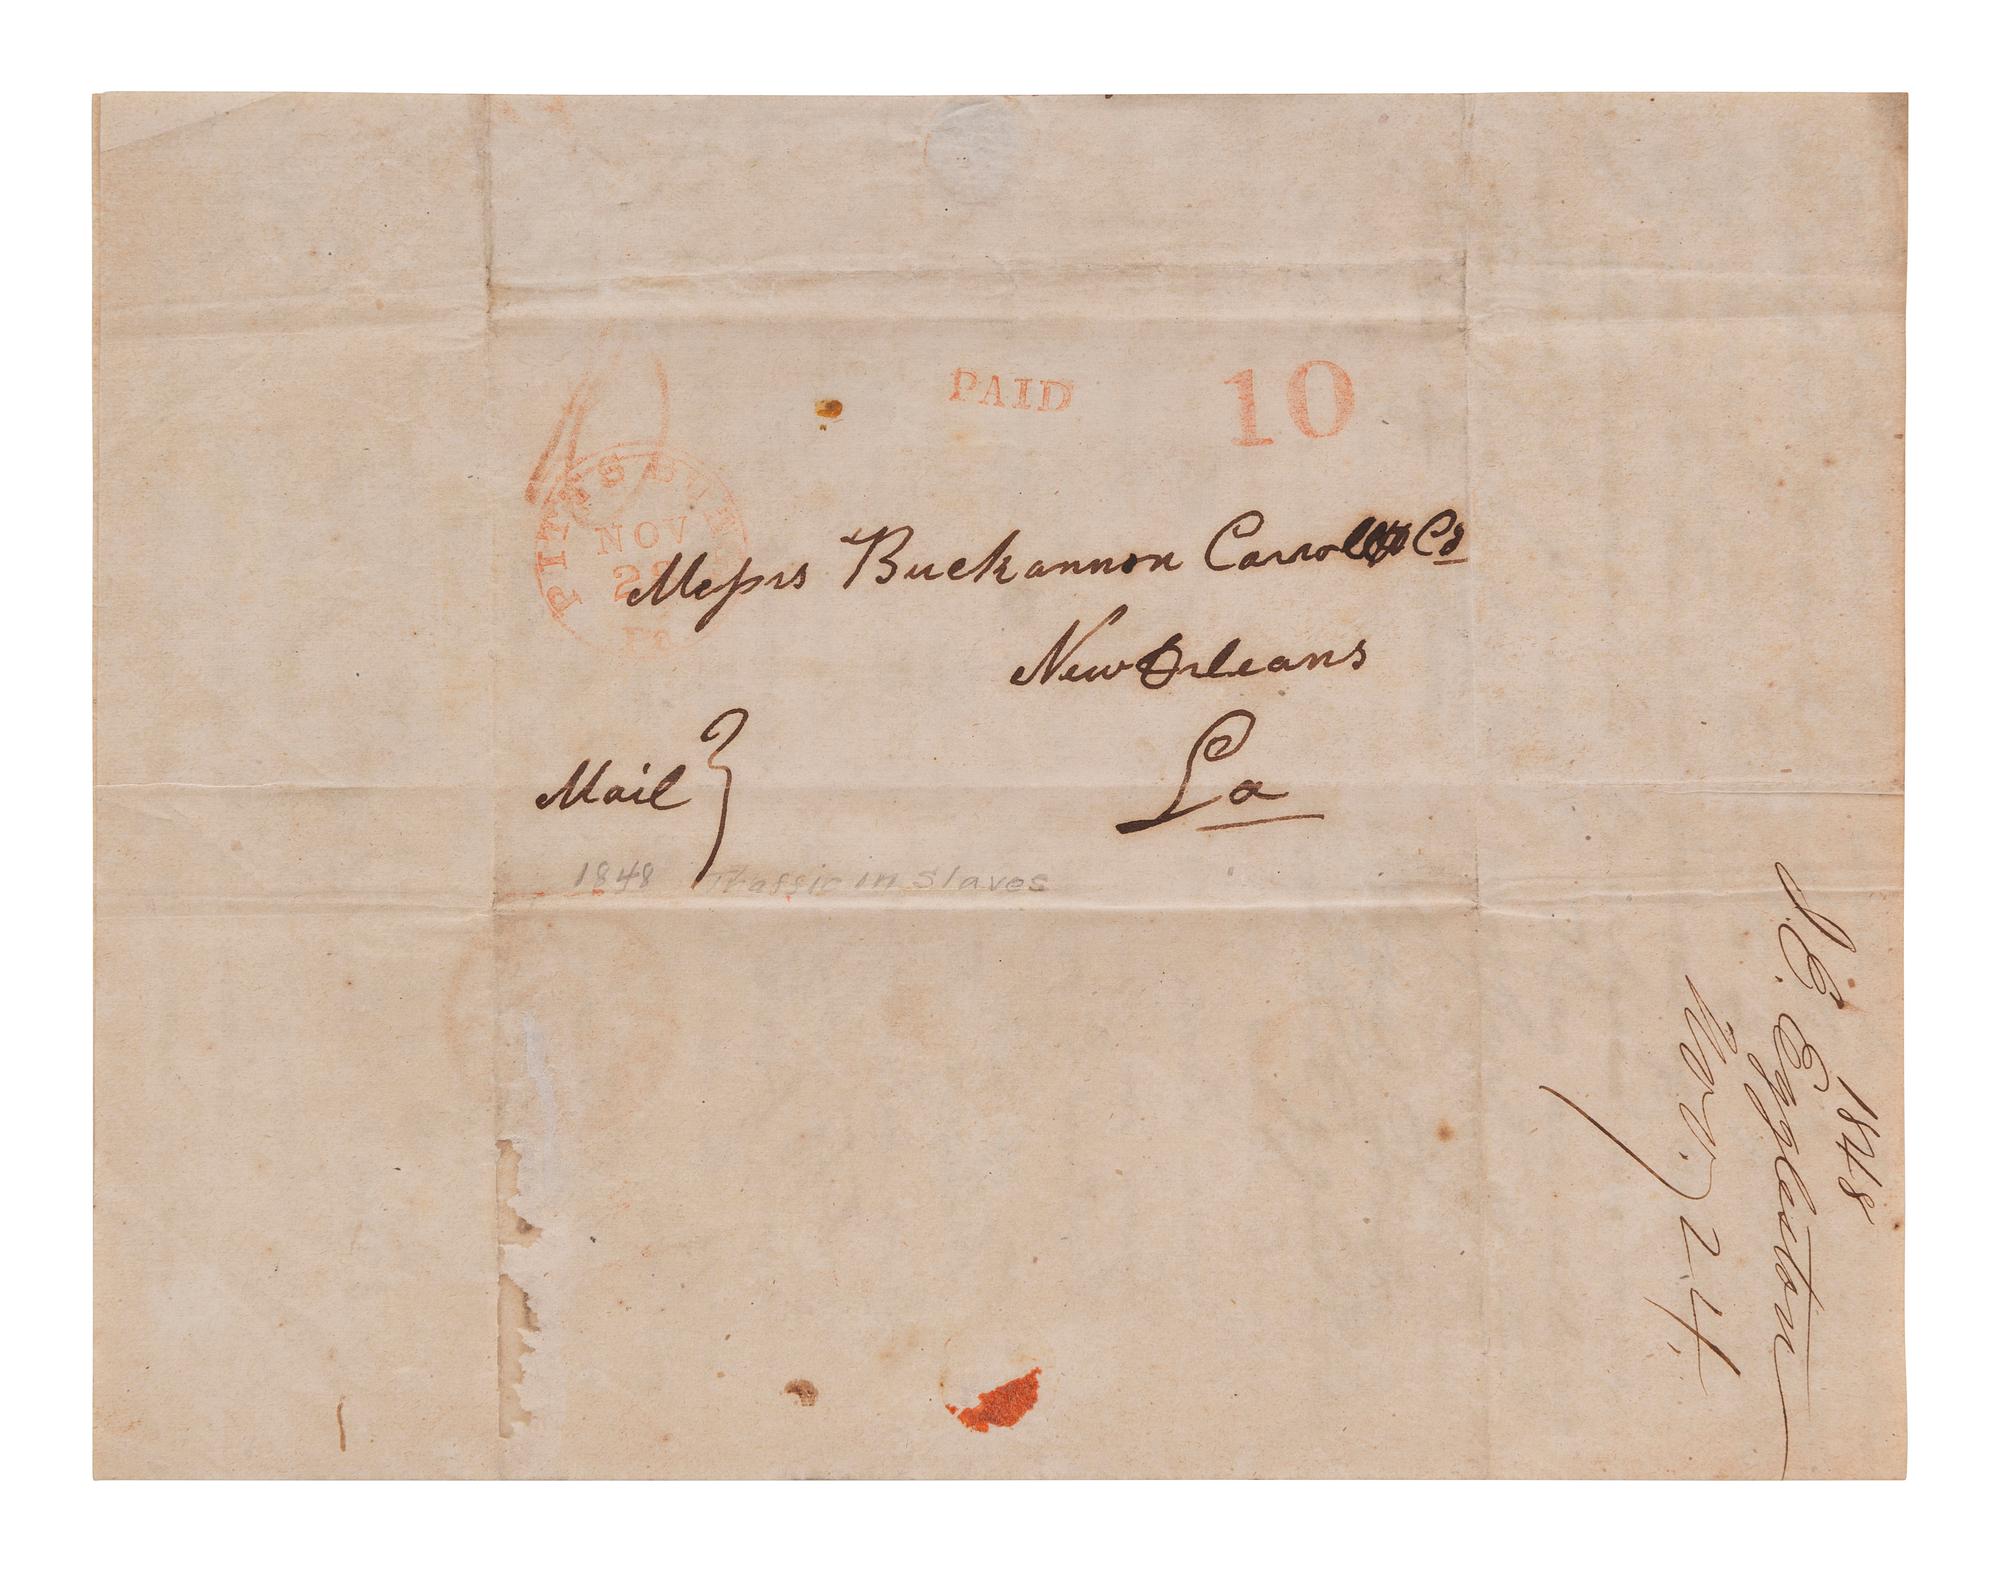 PAID 10
PITTSBURGH
NOV
Pa
Messrs Buckannon Carroll & Co
New Orleans
Mail
La
1848 Traffic in Slaves
1848
Eggleston
Nov. 24